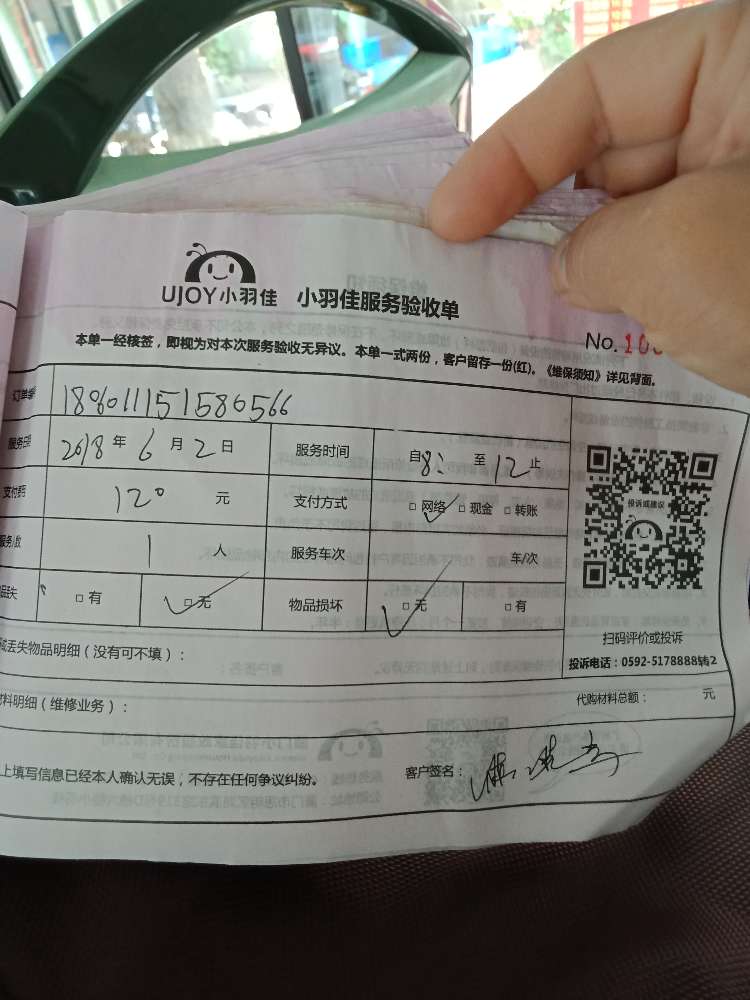 UJOY小羽佳 小羽佳服务验收单
No. 10
本单一经核签，即视为对本次服务验收无异议。本单一式两份，客户留存一份(红)。《维保须知》详见背面。
订单编 1806011151580566
服务日期 2018 年 6 月 2 日 服务时间 自 8: 至 12 止
支付费用 120 元 支付方式 □ 网络 □ 现金 □ 转账
服务人数 1 人 服务车次 车/次
丢失 □ 有 □ 无 物品损坏 □ 无 □ 有
投诉或建议
扫码评价或投诉
投诉电话：0592-5178888转2
丢失物品明细（没有可不填）：
材料明细（维修业务）： 代购材料总额： 元
上填写信息已经本人确认无误，不存在任何争议纠纷。 客户签名：